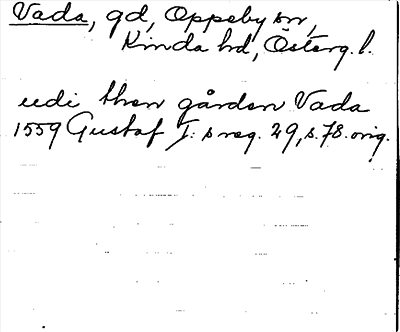 Vada, gd, Oppeby sn,
Kinda hd, Österg. l.
udi then gården Vada
1559 Gustaf I: s reg. 29, s. 78. orig.